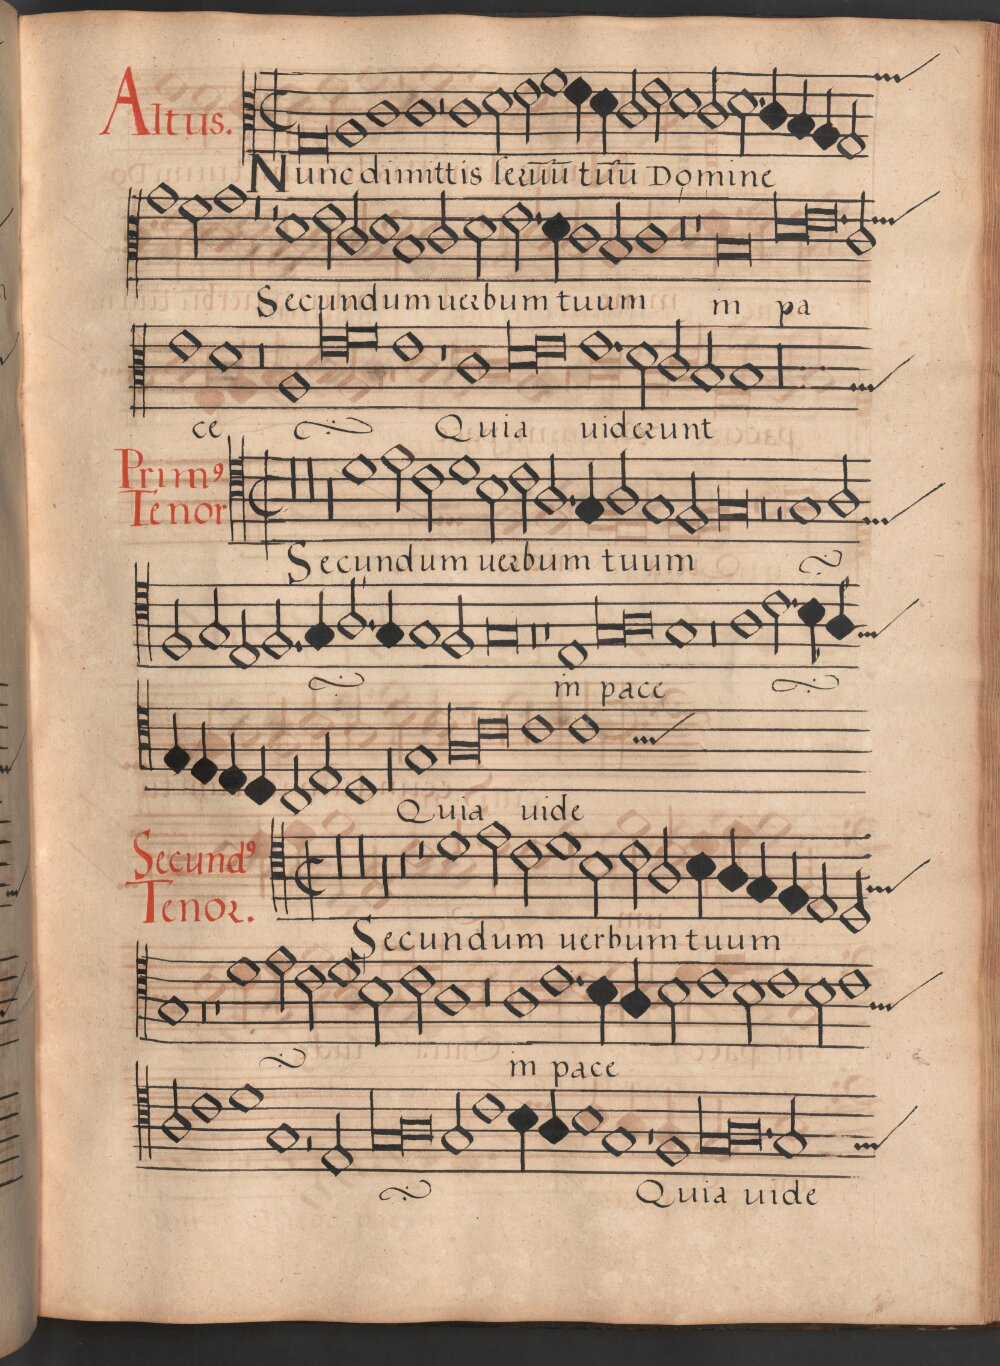 Altus.
Nunc dimittis seruū tuū Domine
Secundum uerbum tuum in pa
ce Quia uiderunt
Primꝰ
Tenor
Secundum uerbum tuum
in pace
Quia uide
Secundꝰ
Tenor.
Secundum uerbum tuum
in pace
Quia uide